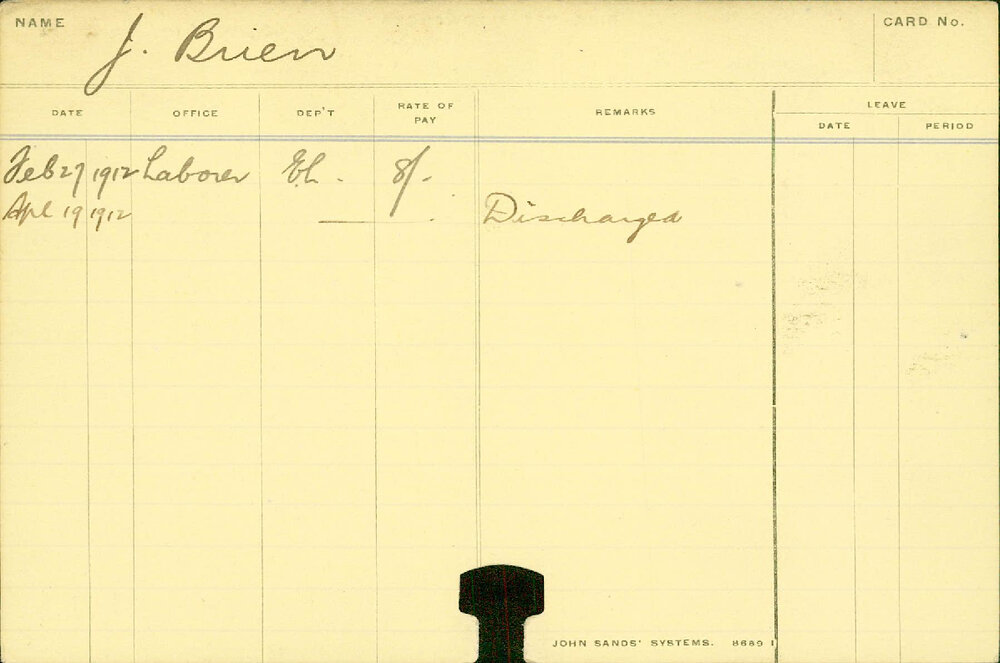 NAME J. Brien CARD No.
DATE OFFICE DEP'T RATE OF PAY REMARKS LEAVE
DATE PERIOD
Feb 27 1912 Laborer 8/-
Apl 19 1912 Discharged
JOHN SANDS' SYSTEMS. 8689